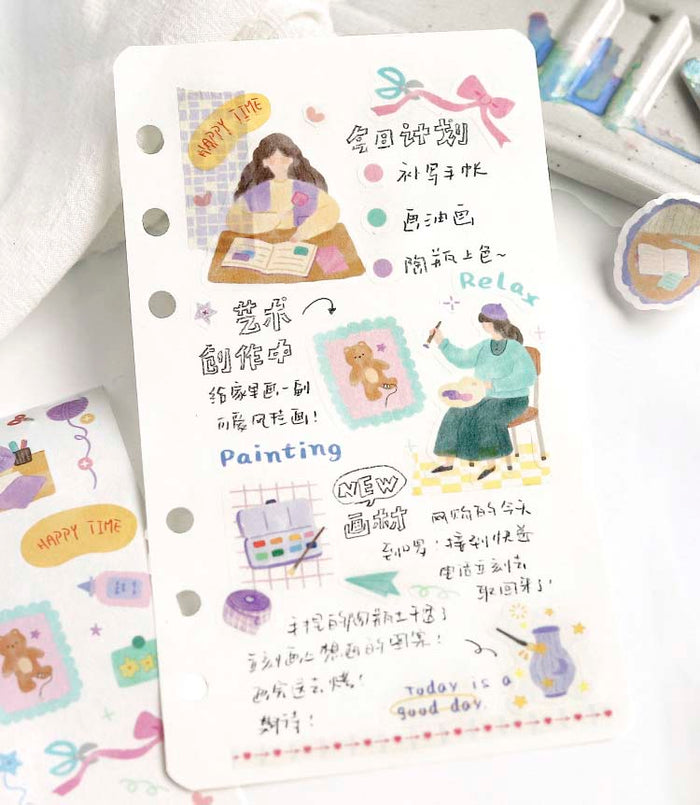 HAPPY TIME
今日计划
补写手帐
画油画
陶瓶上色~
Relax
艺术
创作中
给家里画一副
可爱风挂画!
Painting
NEW
画材
网购的今天
到啦 接到快递
电话立刻去
取回来了!
手捏的陶瓶土干透了
立刻画上想画的图案!
画完送去烤!
期待!
Today is a
good day.
HAPPY TIME